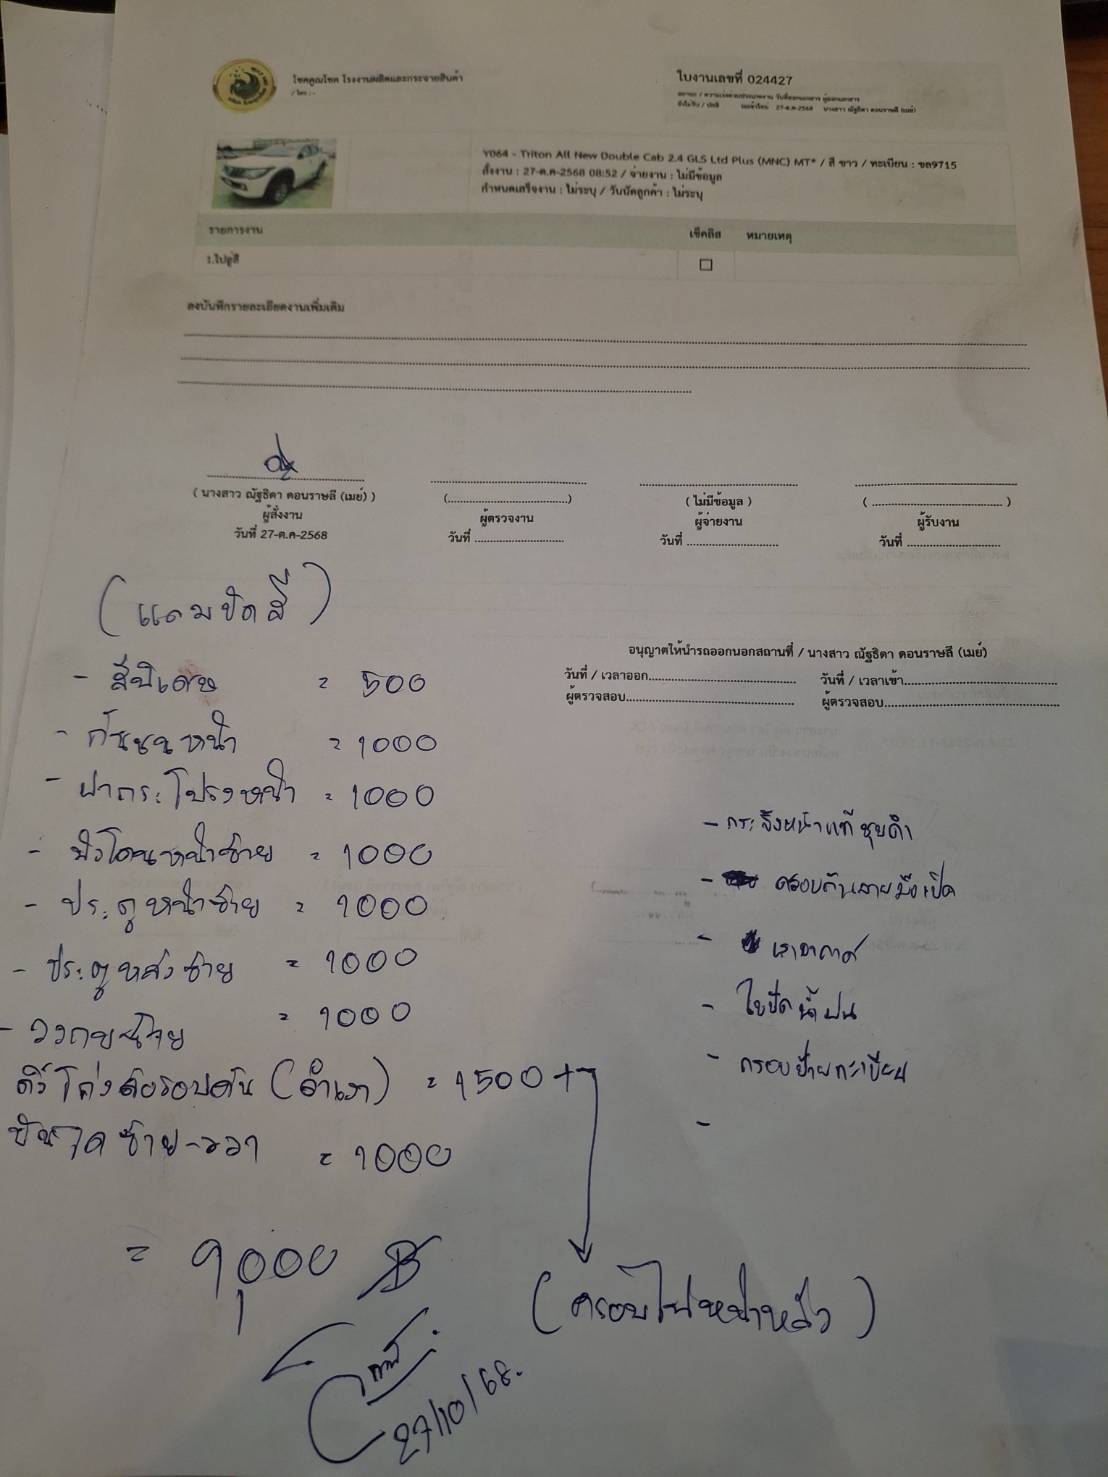 โชคคูณโชค โรงงานผลิตและกระจายสินค้า
/ โทร : -
ใบงานเลขที่ 024427
27-ต.ค-2568 นางสาว ณัฐธิดา ดอนราษลี (เมย์)
Y064 - Triton All New Double Cab 2.4 GLS Ltd Plus (MNC) MT* / สี ขาว / ทะเบียน : ขล9715
สั่งงาน : 27-ต.ค-2568 08:52 / จ่ายงาน : ไม่มีข้อมูล
กำหนดเสร็จงาน : ไม่ระบุ / วันนัดลูกค้า : ไม่ระบุ
รายการงาน เช็คลิส หมายเหตุ
1.ไปอู่สี
ลงบันทึกรายละเอียดงานเพิ่มเติม
( นางสาว ณัฐธิดา ดอนราษลี (เมย์) )
ผู้สั่งงาน
วันที่ 27-ต.ค-2568
(..............................)
ผู้ตรวจงาน
วันที่ ......................
( ไม่มีข้อมูล )
ผู้จ่ายงาน
วันที่ ......................
( .............................. )
ผู้รับงาน
วันที่ ......................
อนุญาตให้นำรถออกนอกสถานที่ / นางสาว ณัฐธิดา ดอนราษลี (เมย์)
วันที่ / เวลาออก.................................... วันที่ / เวลาเข้า....................................
ผู้ตรวจสอบ.................................... ผู้ตรวจสอบ....................................
(แถมขัดสี)
- สีพิเศษ = 500
- กันชนหน้า = 1000
- ฝากระโปรงหน้า = 1000
- บังโคลนหน้าซ้าย = 1000
- ประตูหน้าซ้าย = 1000
- ประตูหลังซ้าย = 1000
- = 1000
คิ้วโก่งล้อรอบคัน (ดำเงา) = 1500
บันไดซ้าย-ขวา = 1000
= 9,000 ฿
(ครอบไฟหน้าหลัง)
27/10/68.
- กระจังหน้าแท้ชุบดำ
- ครอบกันลายมือเปิด
- เสาอากาศ
- ใบปัดน้ำฝน
- กรอบป้ายทะเบียน
-